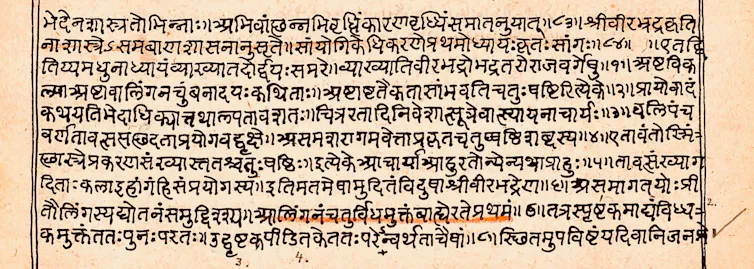 भेदेनशास्त्रतोभिन्नाः॥अभिवांछन्नभिइष्टिंकारणवृध्धिंसमातनुयात्॥८३॥श्रीवीरभद्रकृति
नाशास्त्रेऽसमबाणशासनानुसृतै॥सांयोगिकेधिकरणेप्रथमोध्यायःकृतःसांगः॥८४॥ ॥एतद्वि
तिय्यमधुनाध्यायंव्याख्यातदोर्द्दयःसमरे॥व्याख्यातिवीरभद्रोभद्रतरोराजवर्गेषु॥१॥अष्टविक
ल्पाअष्टावालिंगनचुंबनादयःकथिताः॥अष्टाष्टतैकतासांभवतिचतुःषष्टिरित्येके॥२॥प्रायोवादं
कथयतिभेदाधिक्यात्तथाल्पतावशतः॥चित्ररतादिनिवेशात्सूत्रेवात्स्यायनाचार्यः॥३॥
वर्णतावससछदताप्रयोगवद्वृक्षे॥असमशरागमवेत्ताप्रकृतचतुष्षष्ठिशब्दस्य॥४॥एतावंतोस्मिं
छास्त्रेप्रकरणसंख्यास्ततश्चतुःषष्ठिः॥इत्येकेआचार्याआदुरतोन्येन्यथाप्राहुः॥५॥तावसंख्याग
दिताःकलाइहांगंहिसंप्रयोगस्य॥इतिमतमेषामुदितंविदुषाश्रीवीरभद्रेण॥६॥असमागतयोःप्री
तौलिंगस्यद्योतनंसमुद्दिश्य॥आलिंगनंचतुर्विधमुक्तंवात्स्येरतेप्रथमं॥७॥तत्रस्पृष्टकमाद्यंविध्य 2.
कमुक्तंततःपुनःपरतः॥उद्घृष्टकपीडितकेततःपरेन्वर्थताचैषां॥८॥स्छितमुपविष्टंयदिवानिजनम
3. 4.